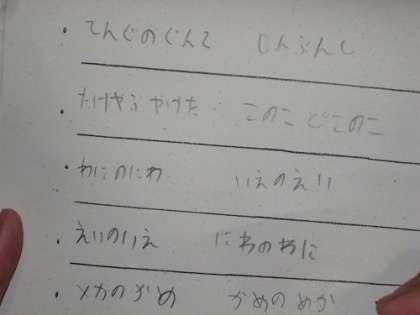 ・てんぐのぐんて　しんぶんし
・たけやぶ やけた　このこ どこのこ
・わにのにわ　いえのえい
・えいのいえ　にわのわに
・メカのかめ　かめの めか